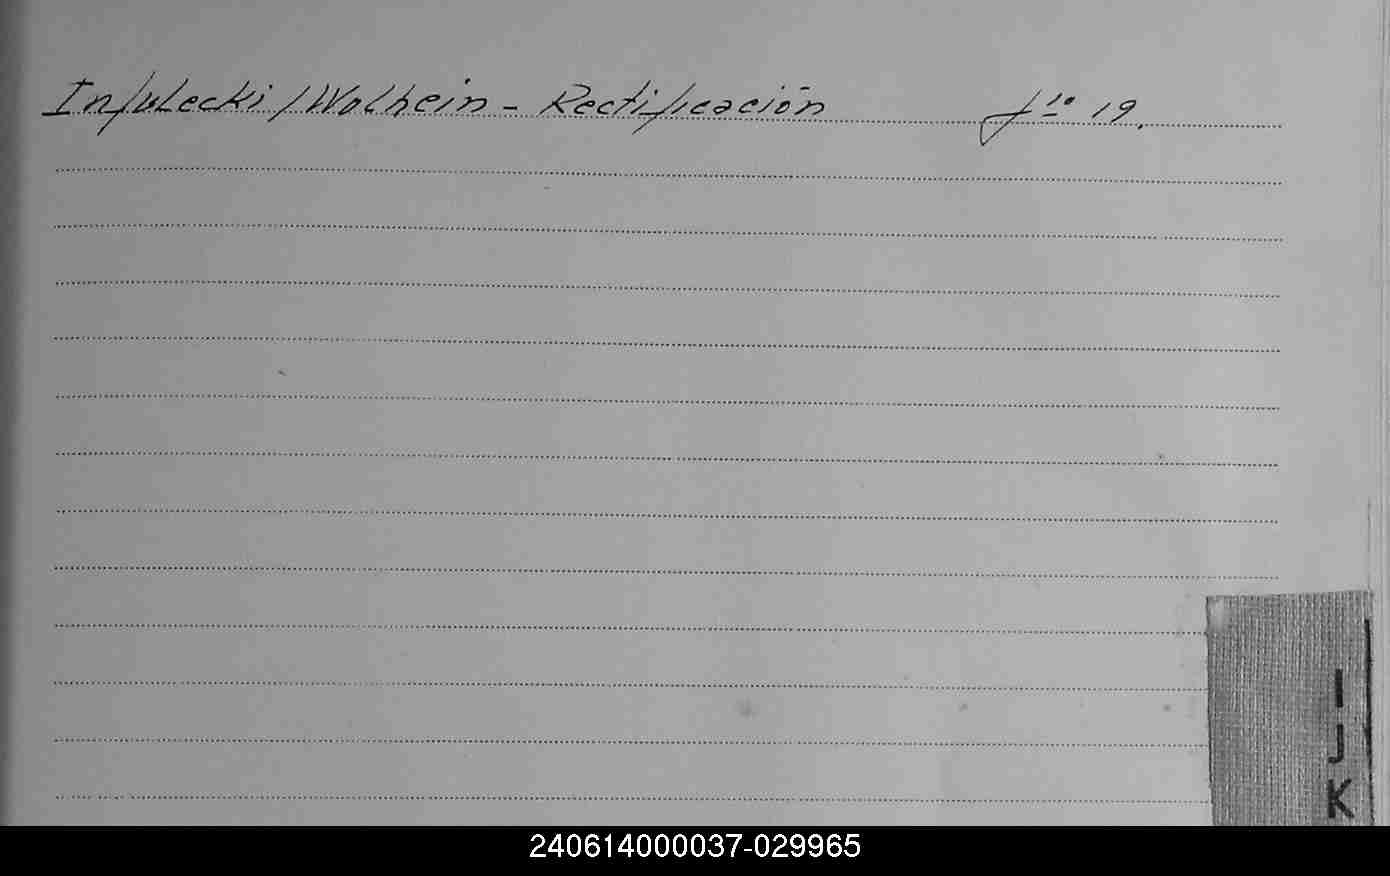 Infulecki/Wolhein - Rectificación fº 19.
I
J
K
240614000037-029965